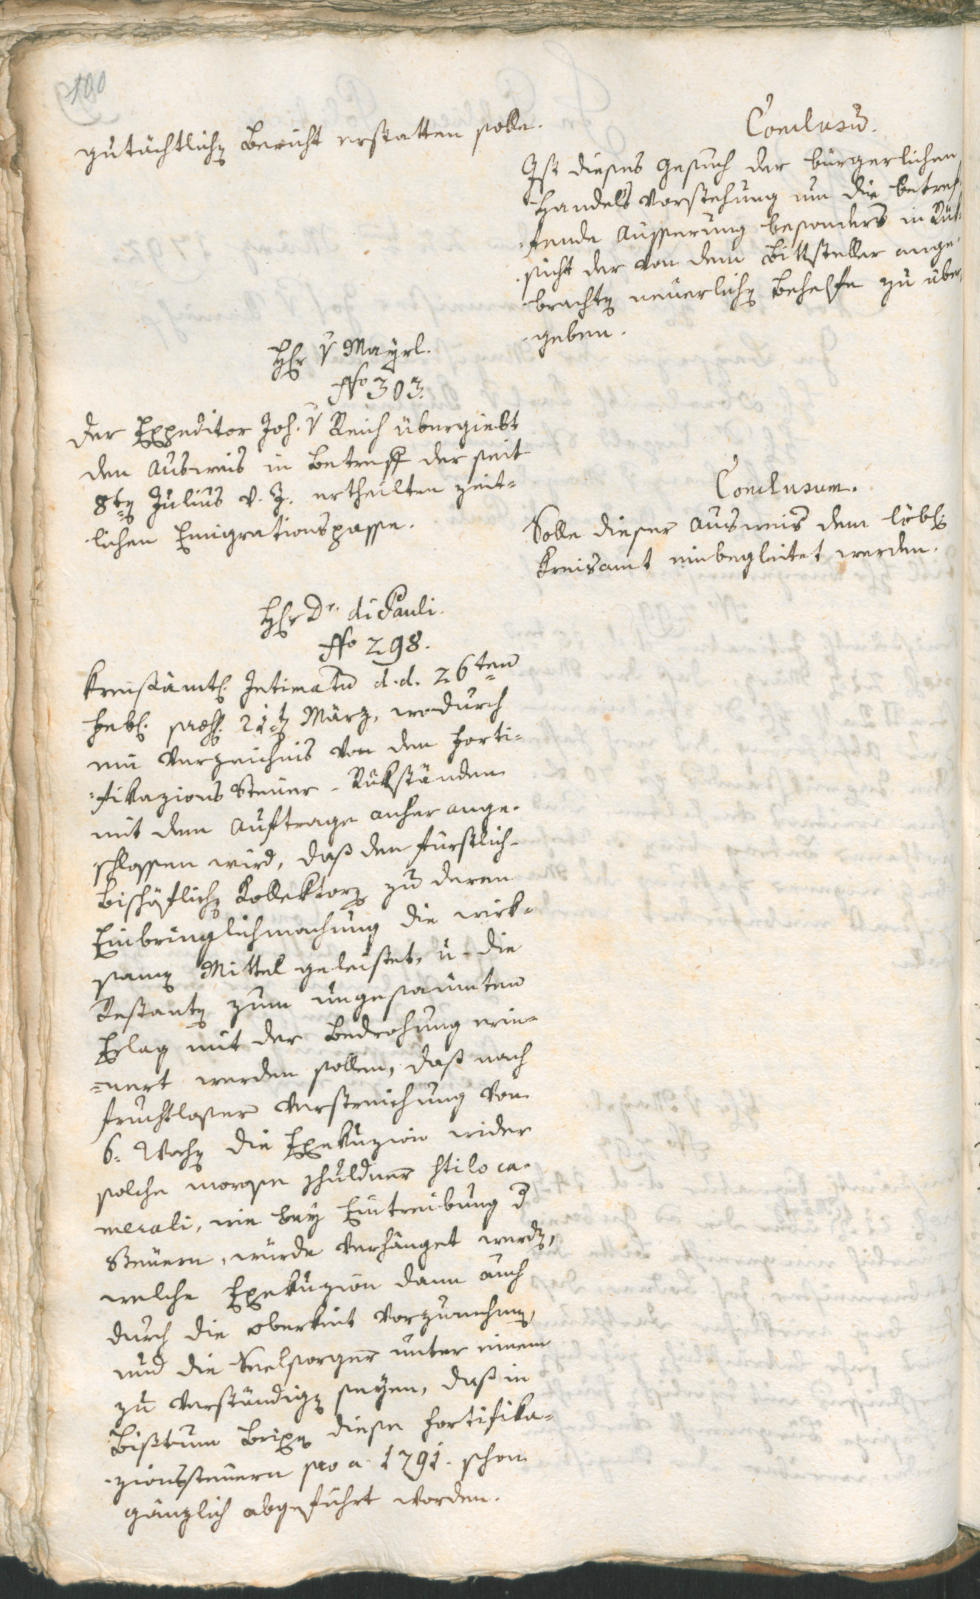 100
gutächtlichen Bericht erstatten solle.
Conclusum.
Ist dieses Gesuch der bürgerlichen
Handels Vorstehung um die betref-
fende Äusserung besonders in Rük-
sicht der von dem Bittsteller ange-
brachten neuerlichen Behelfe zu über-
geben.
Hr. v Mayrl.
No 303.
Der Expeditor Joh. v Reich übergiebt
den Ausweis in Betreff der seit
8ten Julius v. J. ertheilten zeit-
lichen Emigrationspässe.
Conclusum.
Solle dieser Ausweis dem löbl.
Kreisamt einbegleitet werden.
Hr Dr. di Pauli.
No 298.
Kreisämtl. Intimatum d.d. 26ten
Febl. 21ten März, wodurch
ein Verzeichnis von den Forti-
fikazions Steuer-Rükständen
mit dem Auftrage anher ange-
schlossen wird, daß den fürstlich-
bischöflichen Kollektorn zu deren
Einbringlichmachung die wirk-
samen Mittel geleistet, u. die
Restanten zum ungesaumten
Erlag mit der Bedrohung erin-
nert werden sollen, daß nach
fruchtloser Verstreichung von
6. Wochen die Exekuzion wider
solche morose Schuldner stilo ca-
merali, wie bey Eintreibung d
Steuern, würde verhänget werden,
welche Exekuzion dann auch
durch die Obrkeit vorzunehmen,
und die Seelsorger unter einem
zu verständigen seyen, daß in
Bißtum Brixen diese Fortifika-
zionssteuern pro a. 1791. schon
gänzlich abgeführt worden.